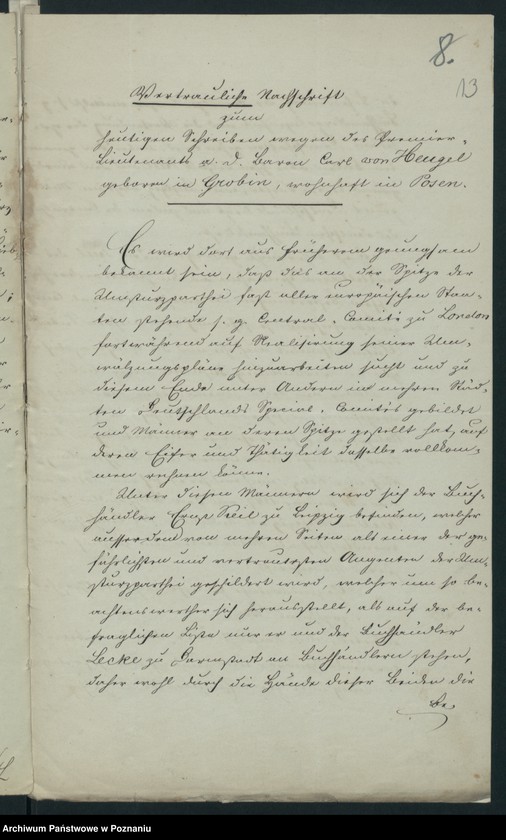 8.
13
Vertrauliche Nachschrift
zum
heutigen Schreiben wegen des Premier-
Lieutenants a. D. Baron Carl von Heugel
geboren in Grobin, wohnhaft in Posen.
Es wird dort aus Früherem genugsam
bekannt sein, daß das an der Spitze der
Umsturzparthei fast aller europäischen Staa-
ten stehende s. g. Central-Comité zu London
fortwährend auf Realisirung seiner Um-
wälzungspläne hinzuarbeiten sucht und zu
diesem Ende unter Andern in mehren Städ-
ten Deutschlands Special-Comités gebildet
und Männer an deren Spitze gestellt hat, auf
deren Eifer und Thätigkeit dasselbe vollkom-
men rechnen könne.
Unter diesen Männern wird sich der Buch-
händler Ernst Keil zu Leipzig befinden, welcher
ausserdem von mehren Seiten als einer der ge-
fährlichsten und vertrautesten Agenten der Um-
sturzparthei geschildert wird, welcher um so be-
achtenswerther sich herausstellt, als auf der be-
fraglichen Liste nur er und der Buchhändler
Lecke zu Darmstadt an Buchhändlern stehen,
daher wohl durch die Hände dieser Beiden die
Be-
Archiwum Państwowe w Poznaniu